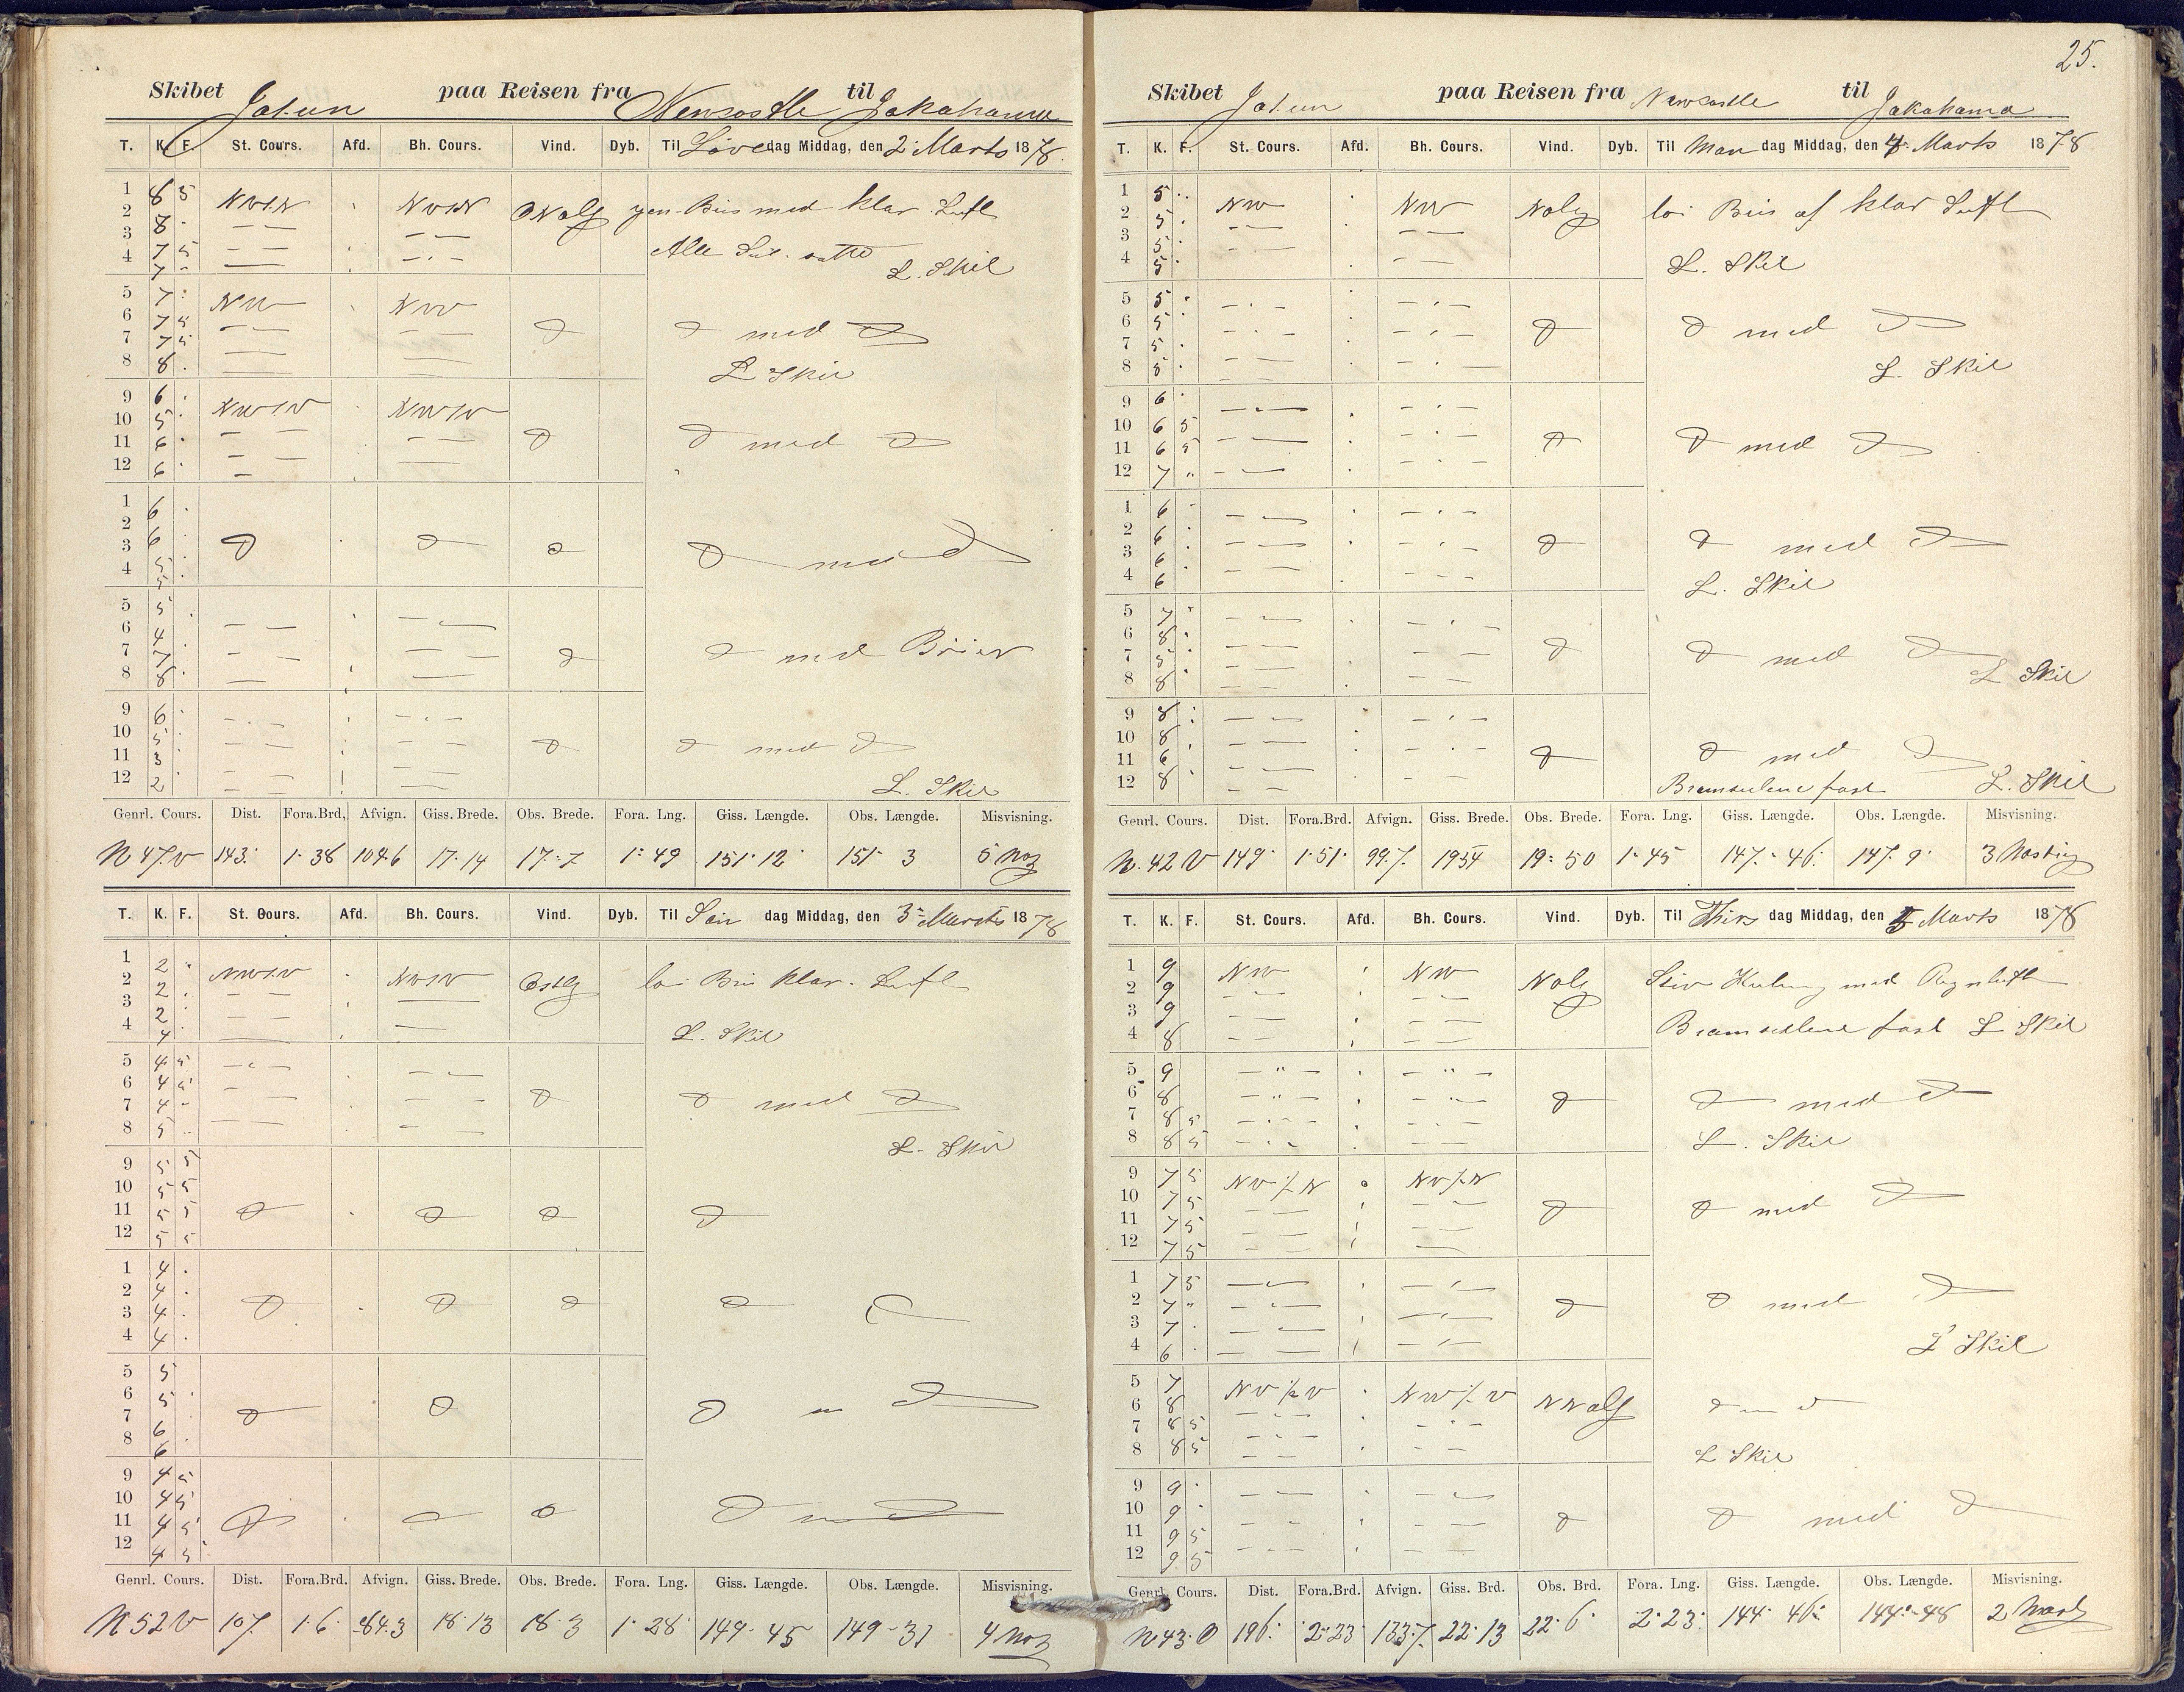 Skibet Jotun paa Reisen fra Newcastle til Jakohama
T. K. F. St. Cours. Afd. Bh. Cours. Vind. Dyb. Til Løverdag Middag, den 2 Marts 1878.
1 8 5 NV½N NV½N ONOlg Bris med klar Luft
2 8
3 7 5 Alle Seil. satte
4 7 L. Skil
5 7 NV NV
6 7 5
7 7 5 D D med D
8 8 L Skil
9 6 NV½V NV½V
10 5
11 6 D D med D
12 6
1 6
2 6
3 5 D D D D med D
4 5
5 5
6 4
7 7 D D med Briser
8 8
9 6
10 5
11 3 D D med D
12 2 L. Skil
Genrl. Cours. Dist. Fora.Brd, Afvign. Giss. Brede. Obs. Brede. Fora. Lng. Giss. Længde. Obs. Længde. Misvisning.
N 47 V 143 1 38 104.6 17 14 17 7 1 49 151 12 151 3 5
T. K. F. St. Cours. Afd. Bh. Cours. Vind. Dyb. Til Søndag Middag, den 3 Marts 1878
1 2 NV½V NV½V Østlg lai Bris klar Luft
2 2
3 2
4 4 L. Skil
5 4 5
6 4 5
7 4 D D med D
8 5 L. Skil
9 5 5
10 5 5
11 5 5 D D D D
12 5 5
1 4
2 4
3 4 D D D D D
4 4
5 5
6 5
7 6 D D D m D
8 6
9 4 5
10 4 5
11 4 5 D D D med D
12 4 5
Genrl. Cours. Dist. Fora.Brd. Afvign. Giss. Brede. Obs. Brede. Fora. Lng. Giss. Længde. Obs. Længde. Misvisning.
N 52 V 107 1 6 84.3 18 13 18 3 1 28 149 45 149 31 4
25.
Skibet Jotun paa Reisen fra Newcastle til Jakohama
T. K. F. St. Cours. Afd. Bh. Cours. Vind. Dyb. Til Mandag Middag, den 4 Marts 1878
1 5 NV NV NOlg lai Bris af klar Luft
2 5
3 5
4 5 L. Skil
5 5
6 5
7 5 D D med D
8 5 L. Skil
9 6
10 6 5
11 6 5 D D med D
12 7
1 6
2 6
3 6 D D med D
4 6 L. Skil
5 7
6 8
7 5 D D med D
8 8 L Skil
9 8
10 8
11 6 D D med D
12 8 Bramseilene fast L. Skil
Genrl. Cours. Dist. Fora.Brd. Afvign. Giss. Brede. Obs. Brede. Fora. Lng. Giss. Længde. Obs. Længde. Misvisning.
N 42 V 149 1 51 99.7 19 54 19 50 1 45 147 46 147 9 3
T. K. F. St. Cours. Afd. Bh. Cours. Vind. Dyb. Til Thirsdag Middag, den 5 Marts 1878
1 9 NV NV NOlg Stiv Kuling med Regnluft
2 9
3 9
4 8 Bramseilene fast L Skil
5 9
6 8
7 8 5 D D med D
8 8 5 L. Skil
9 7 5 NV½N NV½N
10 7 5
11 7 5 D D med D
12 7 5
1 7 5
2 7
3 7 D D med D
4 6 L Skil
5 7 NV½V NV½V NNOlg
6 8 D m D
7 8 5
8 8 5 L Skil
9 9
10 9
11 9 5 D D med D
12 9 5
Genrl. Cours. Dist. Fora.Brd. Afvign. Giss. Brd. Obs. Brd. Fora. Lng. Giss. Længde. Obs. Længde. Misvisning.
N 43 O 196 2 23 133.7 22 13 22 6 2 23 144 46 144 48 2